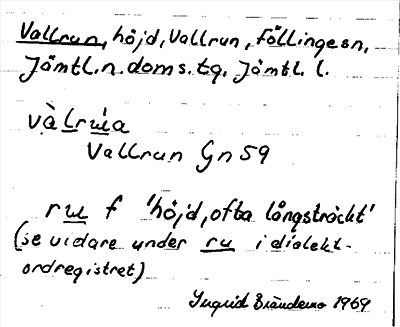 Vallrun, höjd, Vallrun, Föllinge sn,
Jämtl. n. doms. tg, Jämtl. l.
vàlrúa
Vallrun Gn 59
ru f 'höjd, ofta långsträckt'
(se vidare under ru i dialekt-
ordregistret)
Ingrid 1969